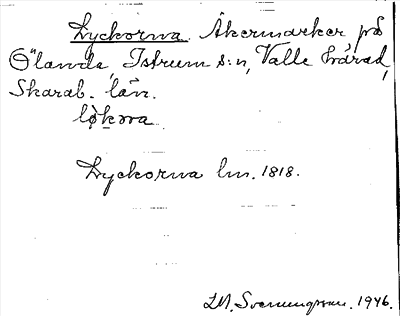 Lyckorna. Åkermarker på
Ölanda, Istrum s:n, Valle härad,
Skarab. län.
Lyckorna lm. 1818.
1946.